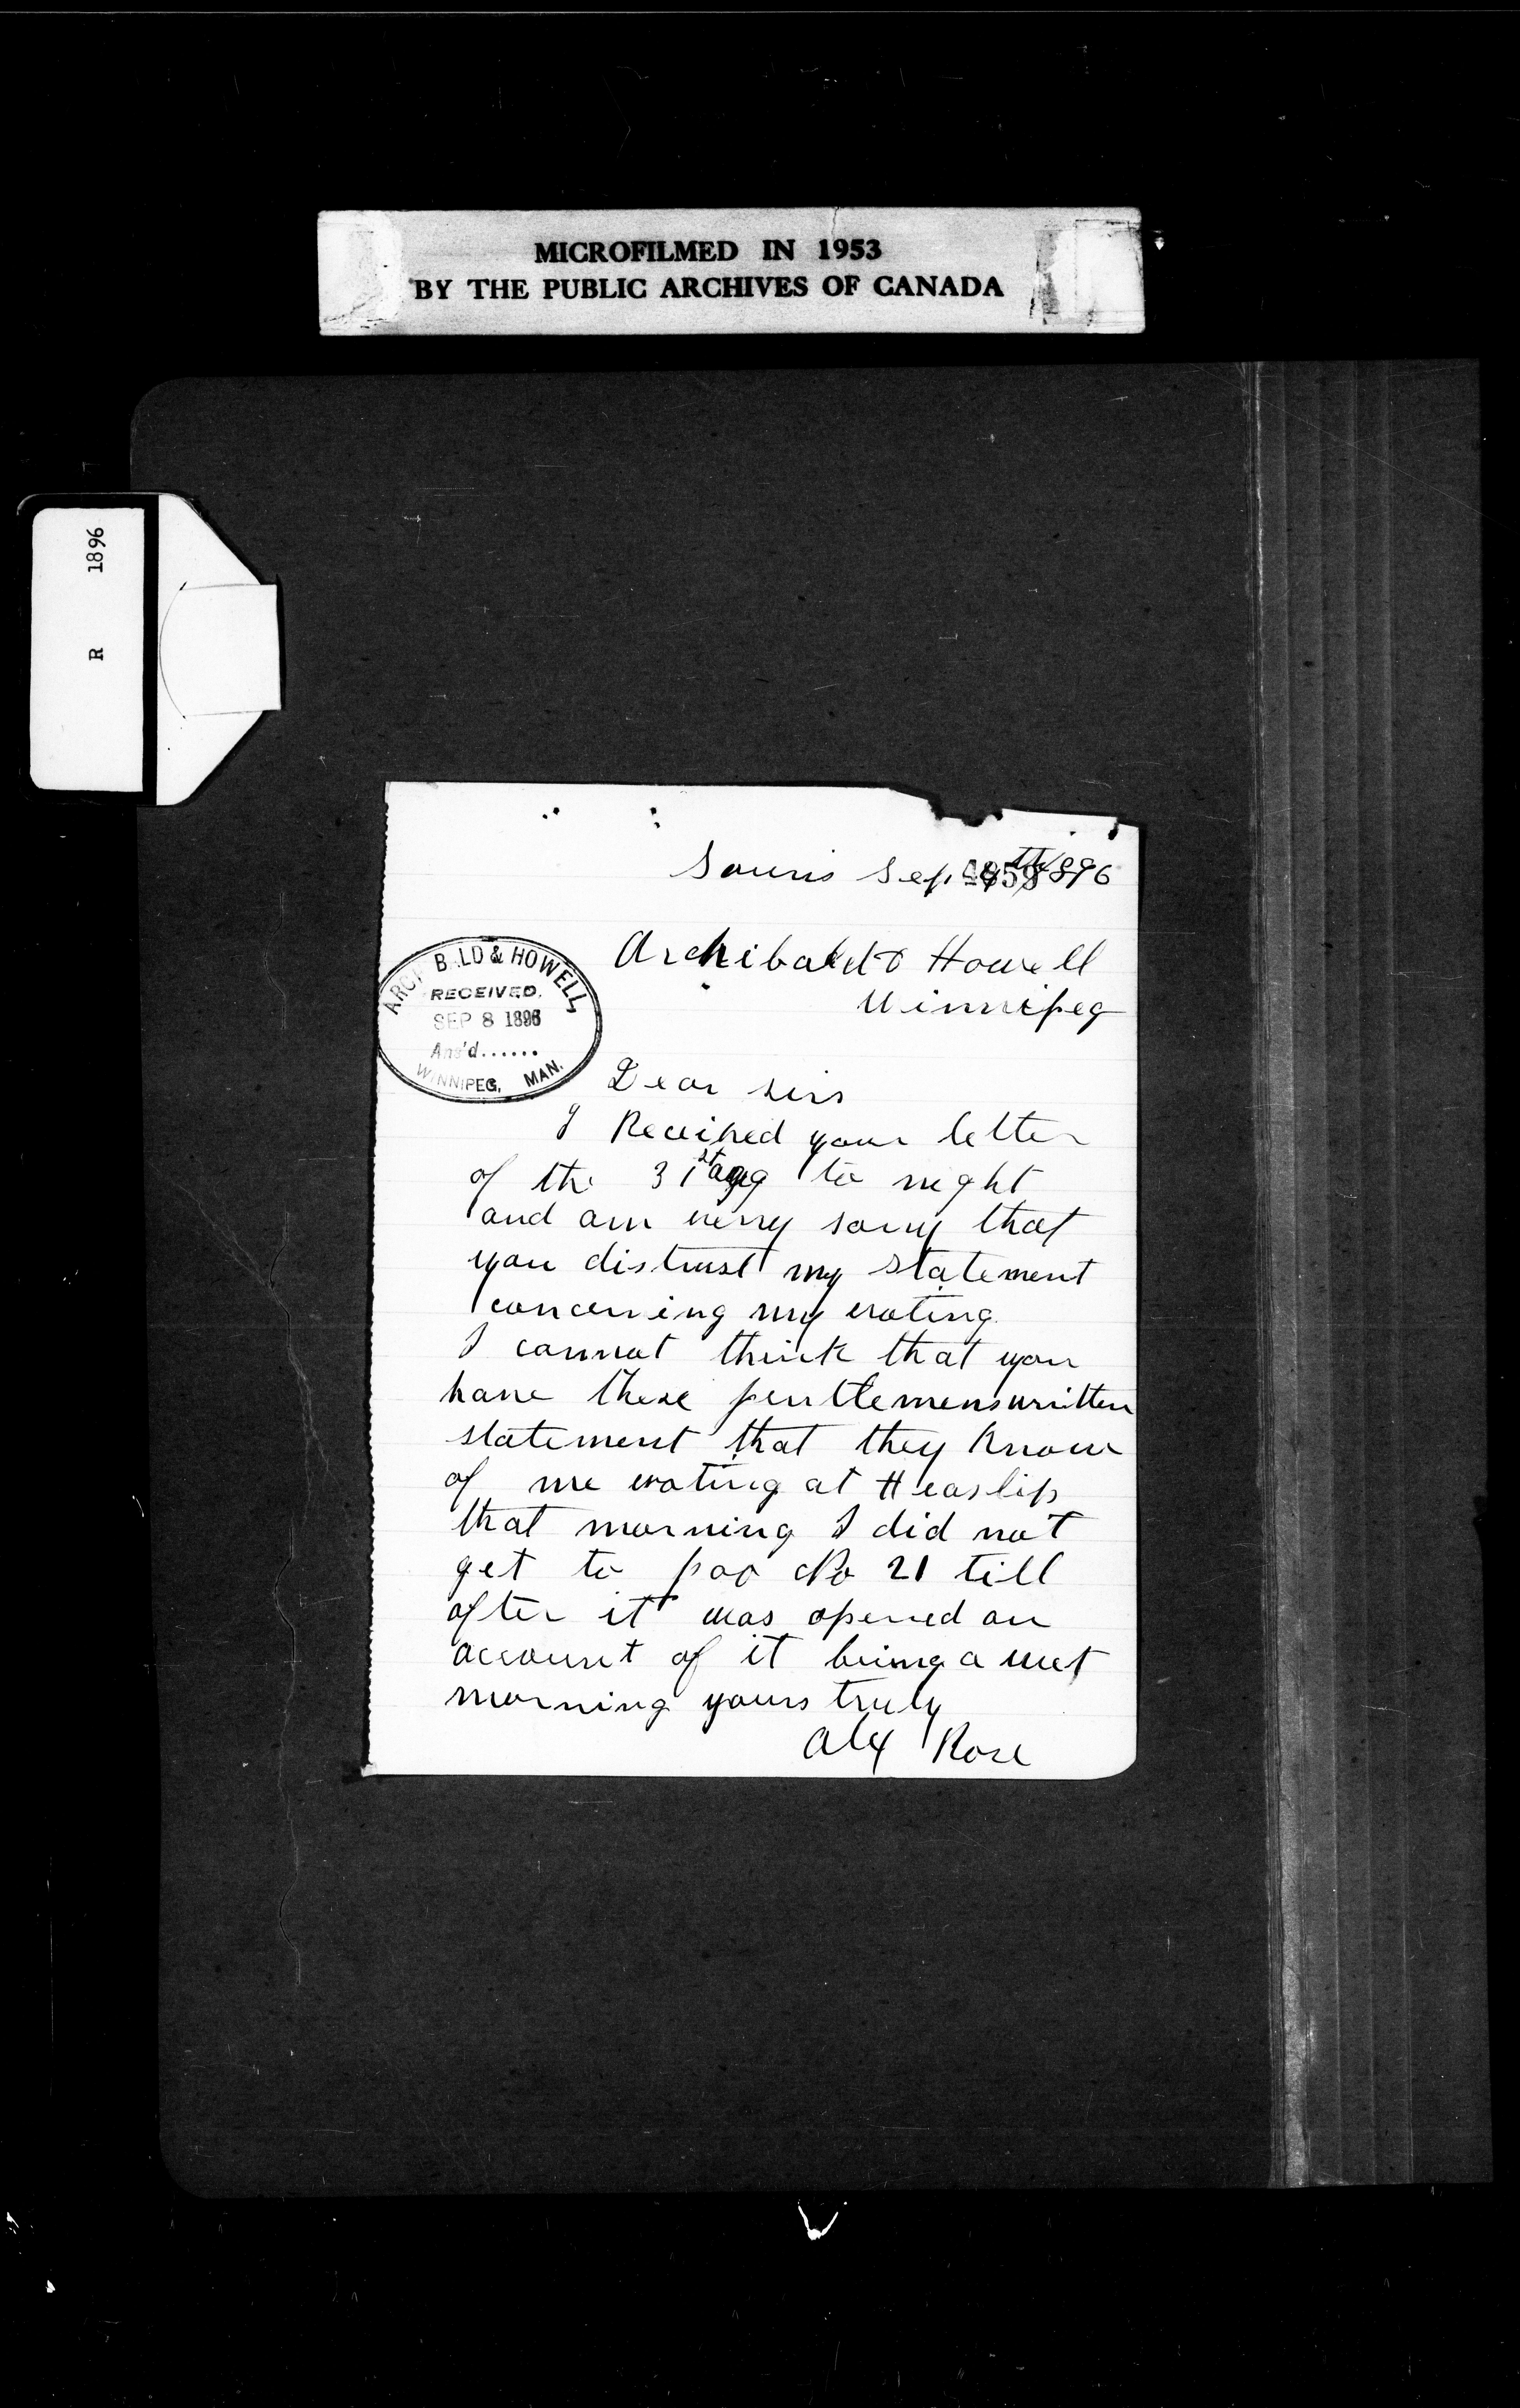 MICROFILMED IN 1953
BY THE PUBLIC ARCHIVES OF CANADA
R 1896
Souris Sep 1896
ARCHIBALD & HOWELL,
RECEIVED.
SEP 8 1896
Ans'd......
WINNIPEG, MAN.
Archibald & Howell
Winnipeg
Dear sirs
I Received your letter
of the 31st aug to night
and am verry sorry that
you distrust my statement
concerning my voting
I cannot think that you
have these gentlemens written
statement that they know
of me voting at Heaslip
that morning I did not
get to No 21 till
after it was opened on
account of it being a wet
morning yours truly
Alex Rose